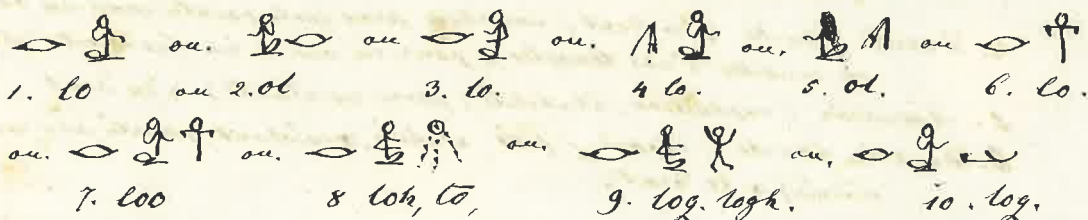 ou. ou ou. ou. ou
1. lo ou 2. ol. 3. lo. 4 lo. 5. ol. 6. lo.
ou. ou. ou. ou,
7. loo 8 loh, to, 9. log. logh. 10. log.